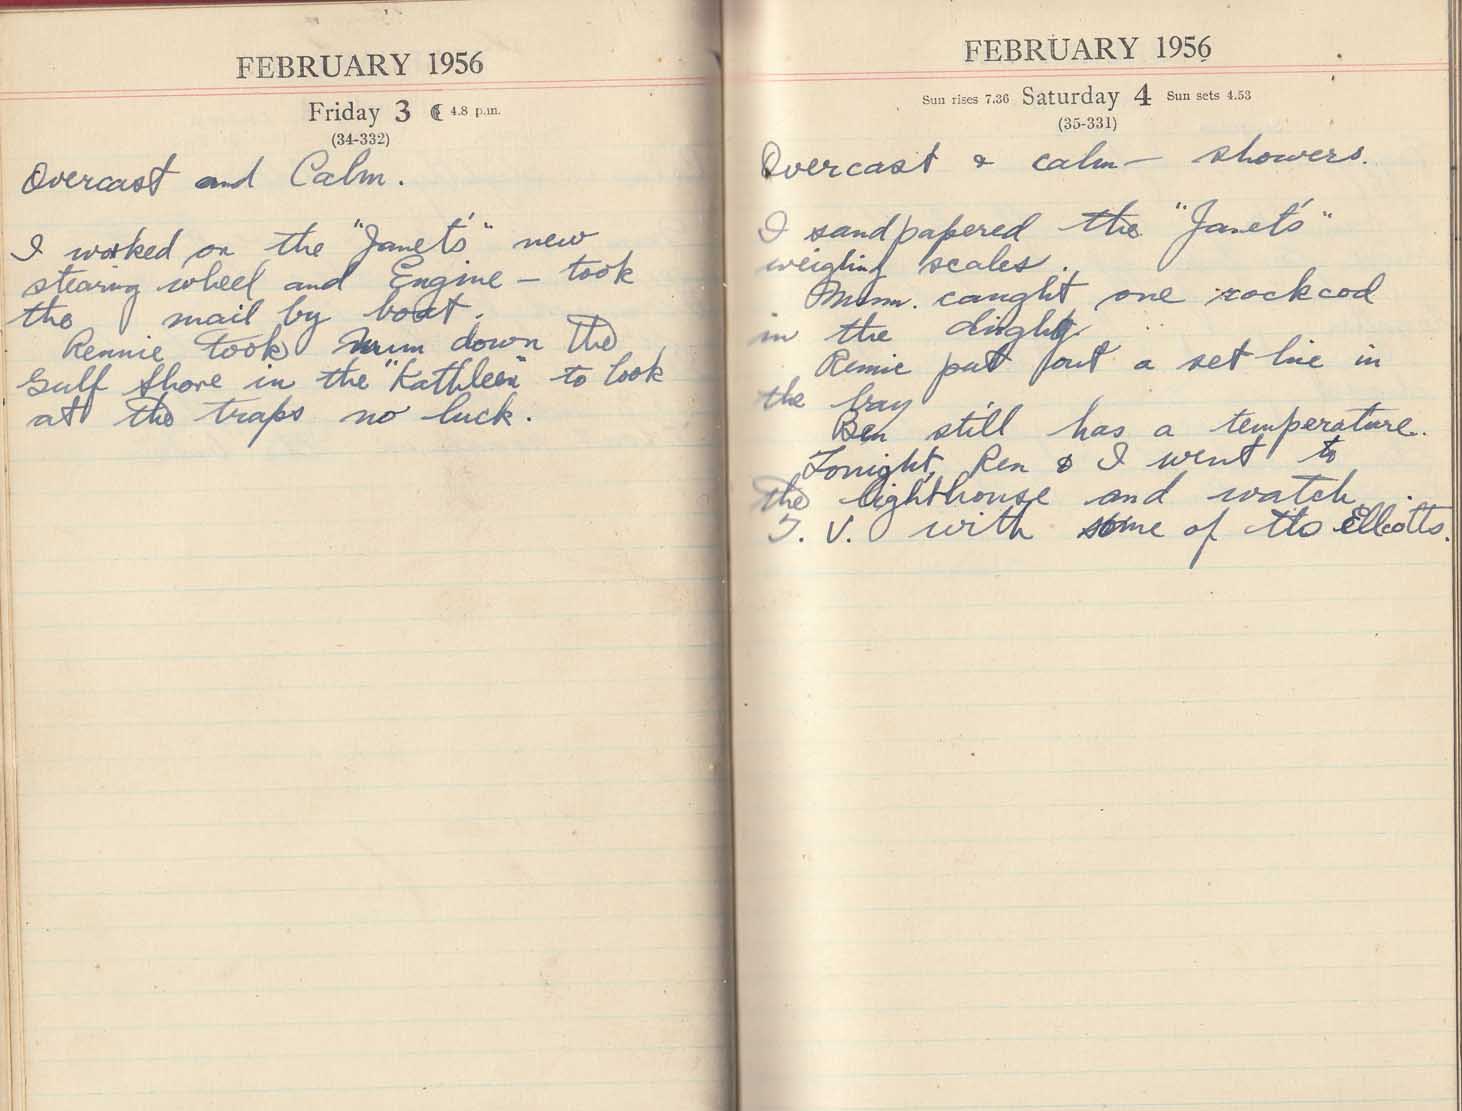 FEBRUARY 1956
Friday 3 ☾ 4.8 p.m.
(34-332)
Overcast and Calm.
I worked on the "Janet's" new
stearing wheel and Engine – took
the mail by boat.
Rennie took Mum down the
Gulf Shore in the "Kathleen" to look
at the traps no luck.
FEBRUARY 1956
Sun rises 7.36 Saturday 4 Sun sets 4.53
(35-331)
Overcast & calm – showers.
I sandpapered the "Janet's"
weighing scales.
Mum. caught one rockcod
in the dinghy
Rennie put out a set line in
the bay
Ben still has a temperature.
Tonight, Ren & I went to
the lighthouse and watch
T. V. with some of the Ellcotts.